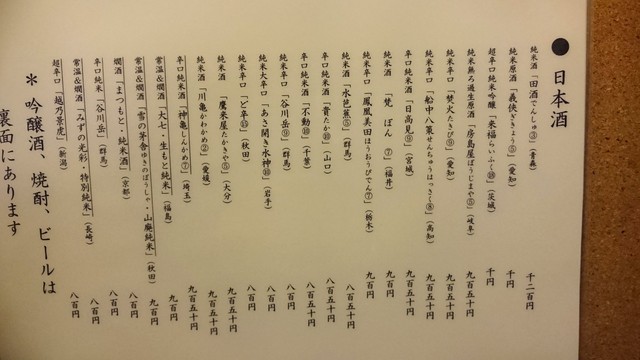 ●日本酒
純米酒「田酒でんしゅ③」（青森） 千二百円
純米原酒「義侠ぎきょう⑤」（愛知） 千円
超辛口純米吟醸「来福らいふく⑱」（茨城） 千円
純米無ろ過生原酒「房島屋ぼうじまや⑤」（岐阜） 九百五十円
純米辛口「焚火たきび⑨」（愛知） 九百五十円
純米辛口「船中八策せんちゅうはっさく⑧」（高知） 九百五十円
辛口純米酒「日高見⑨」（宮城） 九百五十円
純米酒「梵 ぼん ⑦」（福井） 九百円
純米辛口「鳳凰美田ほうおうびでん⑦」（栃木） 九百円
純米酒「水芭蕉⑤」（群馬） 八百五十円
辛口純米酒「貴たか⑩」（山口） 八百五十円
辛口純米酒「不動⑩」（千葉） 八百五十円
純米辛口「谷川岳⑨」（群馬） 八百円
純米大辛口「あさ開き水神⑩」（岩手） 八百円
純米辛口「ど辛⑮」（秋田） 八百円
純米酒「鷹来屋たかきや⑤」（大分） 九百五十円
純米酒「川亀かわかめ②」（愛媛） 九百五十円
辛口純米酒「神亀しんかめ⑦」（埼玉） 九百五十円
常温&燗酒「大七・生もと純米」（福島） 九百円
常温&燗酒「雪の茅舎ゆきのぼうしゃ・山廃純米」（秋田） 九百円
燗酒「まつもと・純米酒」（京都） 八百円
辛口純米「谷川岳」（群馬） 八百円
常温&燗酒「みずの光彩・特別純米」（長崎） 八百円
超辛口「越乃景虎」（新潟） 八百円
＊ 吟醸酒、焼酎、ビールは
裏面にあります